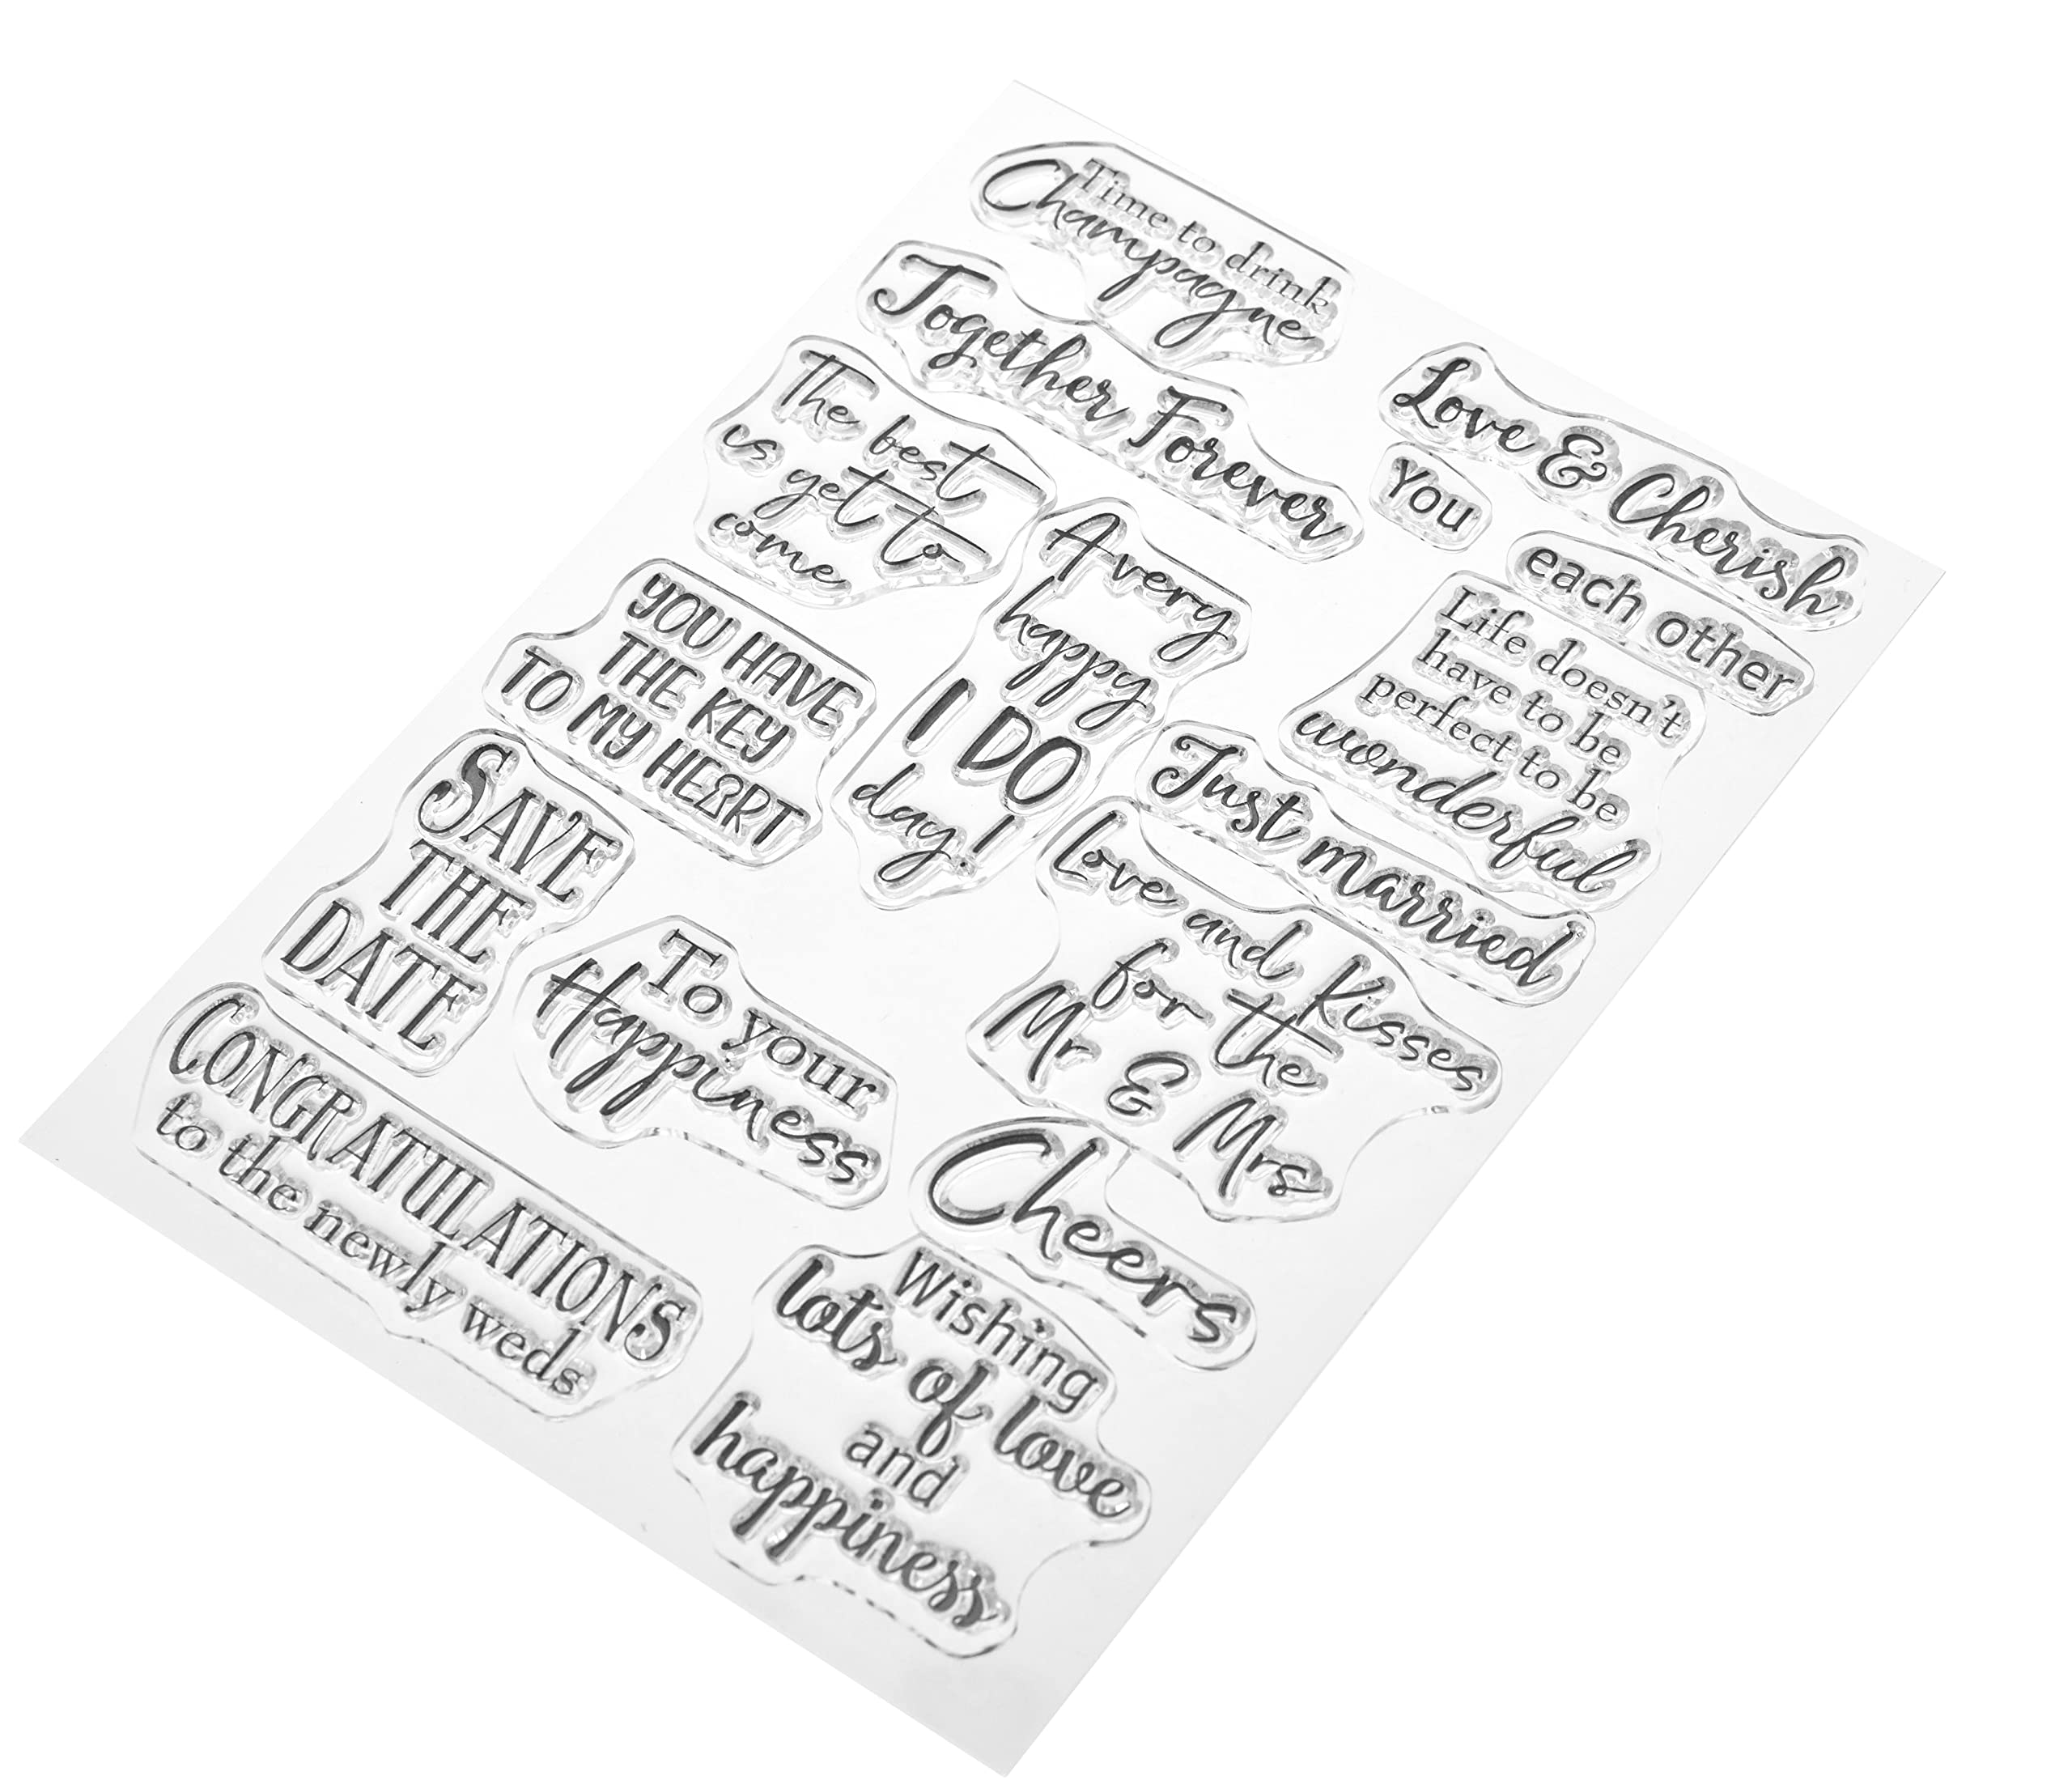 Time to drink
Champagne
Together Forever
Love & Cherish
You
each other
The best
us yet to
come
A very
happy
I DO
day!
Life doesn't
have to be
perfect to be
wonderful
YOU HAVE
THE KEY
TO MY HEART
Just married
SAVE
THE
DATE
Love and Kisses
for the
Mr & Mrs
To your
Happiness
Cheers
CONGRATULATIONS
to the newly weds
Wishing
lots of love
and
happiness